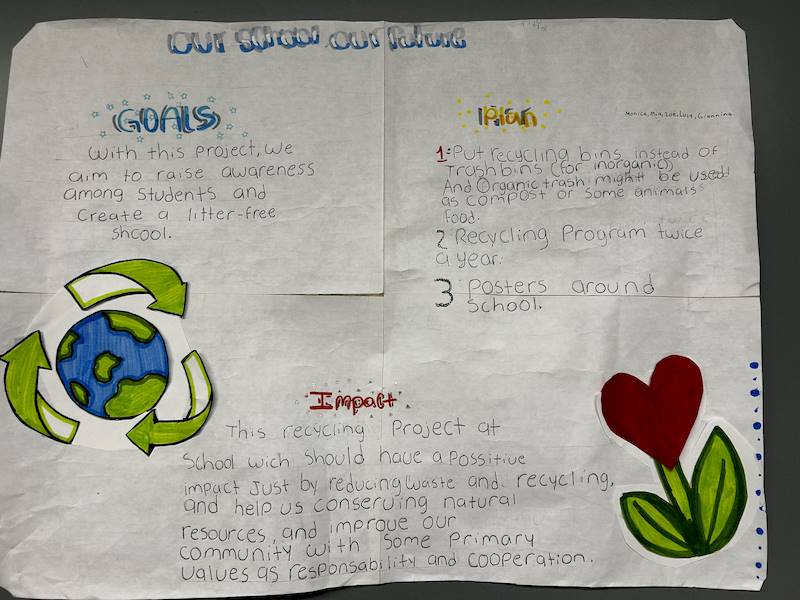 Our School, our future
GOALS
With this project, we
aim to raise awareness
among students and
create a litter-free
shcool.
Plan
1: Put recycling bins instead of
trashbins (for inorganic)
And Organic trash might be used
as compost or some animals
food.
2 Recycling Program twice
a year.
3 Posters around
School.
Impact
This recycling Project at
School wich should have a possitive
impact Just by reducing waste and recycling,
and help us conserving natural
resources, and improve our
community with some primary
values as responsability and cooperation.